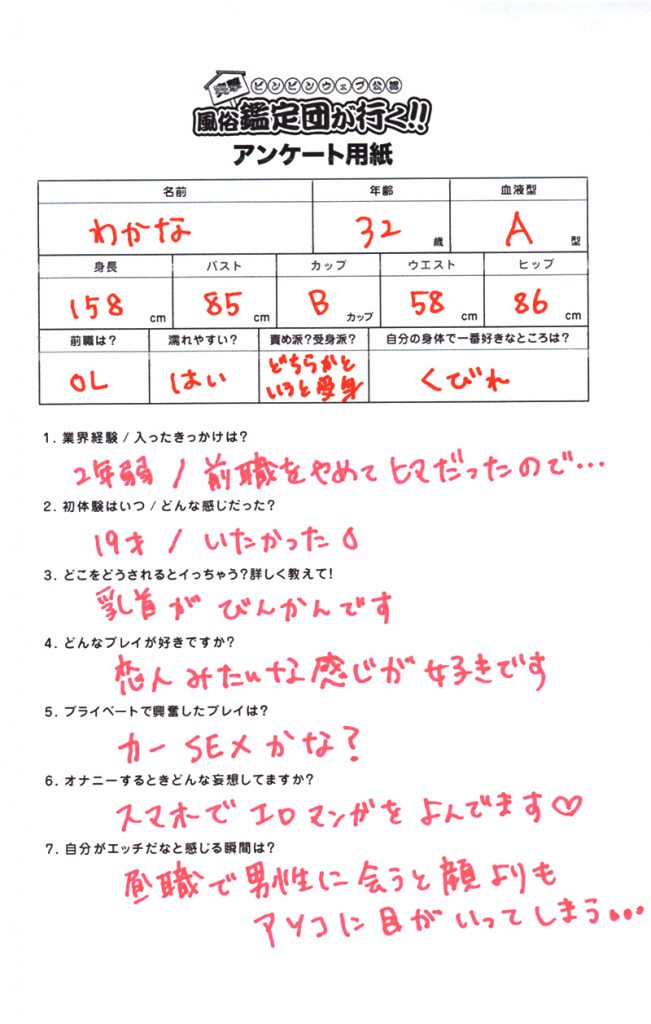 突撃 ビンビンウェブ公認
風俗鑑定団が行く!!
アンケート用紙
名前 年齢 血液型
わかな 32歳 A型
身長 バスト カップ ウエスト ヒップ
158cm 85cm Bカップ 58cm 86cm
前職は? 濡れやすい? 責め派?受身派? 自分の身体で一番好きなところは?
OL はい どちらかと くびれ
いうと受身
1. 業界経験 / 入ったきっかけは?
2年弱 / 前職をやめてヒマだったので…
2. 初体験はいつ / どんな感じだった?
19才 / いたかった
3. どこをどうされるとイっちゃう?詳しく教えて!
乳首がびんかんです
4. どんなプレイが好きですか?
恋人みたいな感じが好きです
5. プライベートで興奮したプレイは?
カーSEXかな?
6. オナニーするときどんな妄想してますか?
スマホでエロマンガをよんでます♡
7. 自分がエッチだなと感じる瞬間は?
昼職で男性に会うと顔よりも
アソコに目がいってしまう…